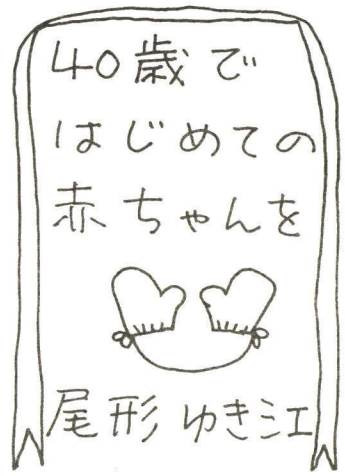 40歳で
はじめての
赤ちゃんを
尾形ゆき江